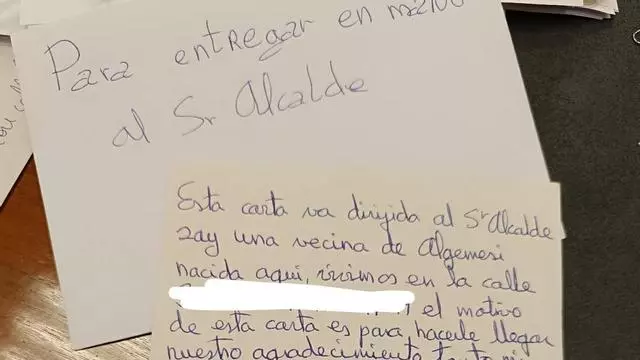 Para entregar en mano
al Sr Alcalde
Esta carta va dirijida al Sr Alcalde
soy una vecina de Algemesi
nacida aqui, vivimos en la calle
el motivo
de esta carta es para hacerle llegar
nuestro agradecimiento tanto